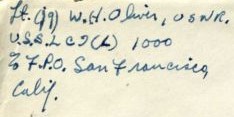 Lt. (jg) W.H. Oliver, USNR.
U.S.S. LCI(L) 1000
℅ F.P.O. San Francisco,
Calif.